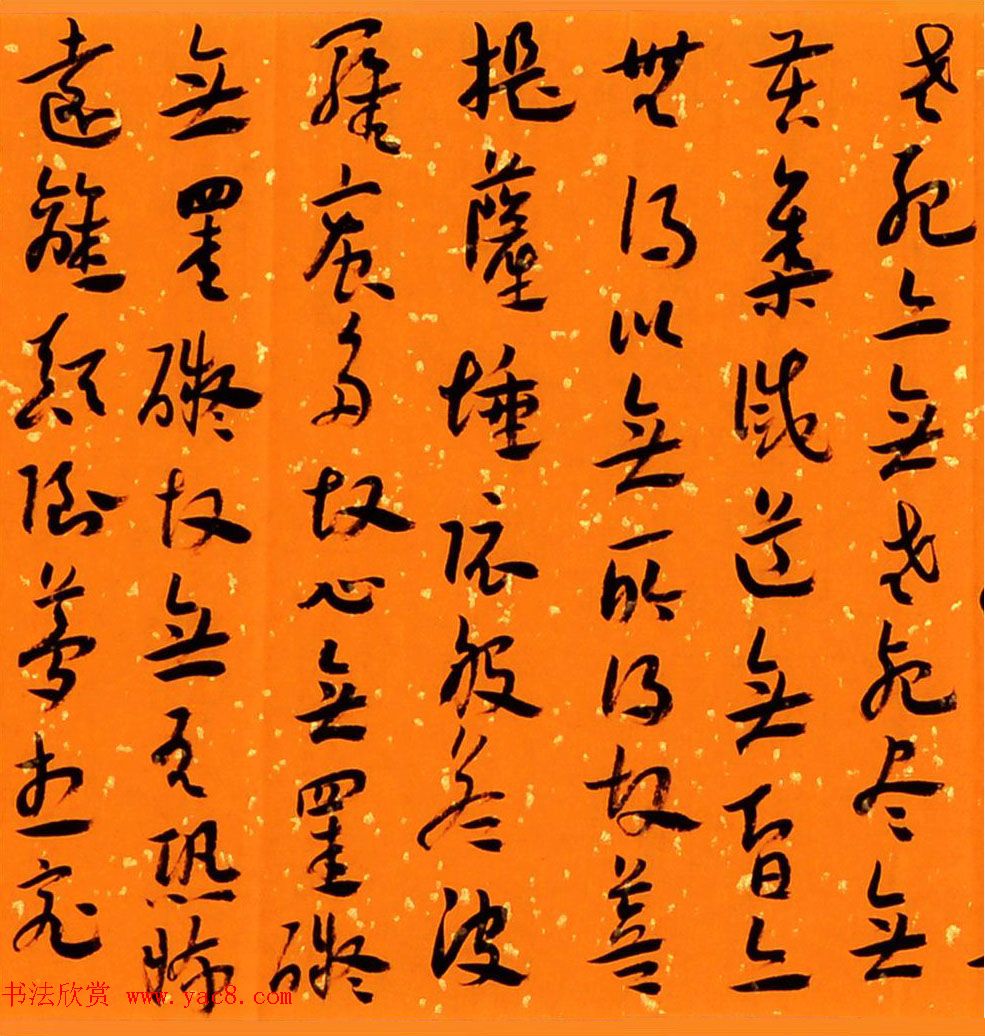 老死亦無老死尽無
苦集滅道無智亦
無得以無所得故菩
提薩埵依般若波
羅蜜多故心無罣礙
無罣礙故無有恐怖
遠離顛倒夢想究
书法欣赏 www.yac8.com